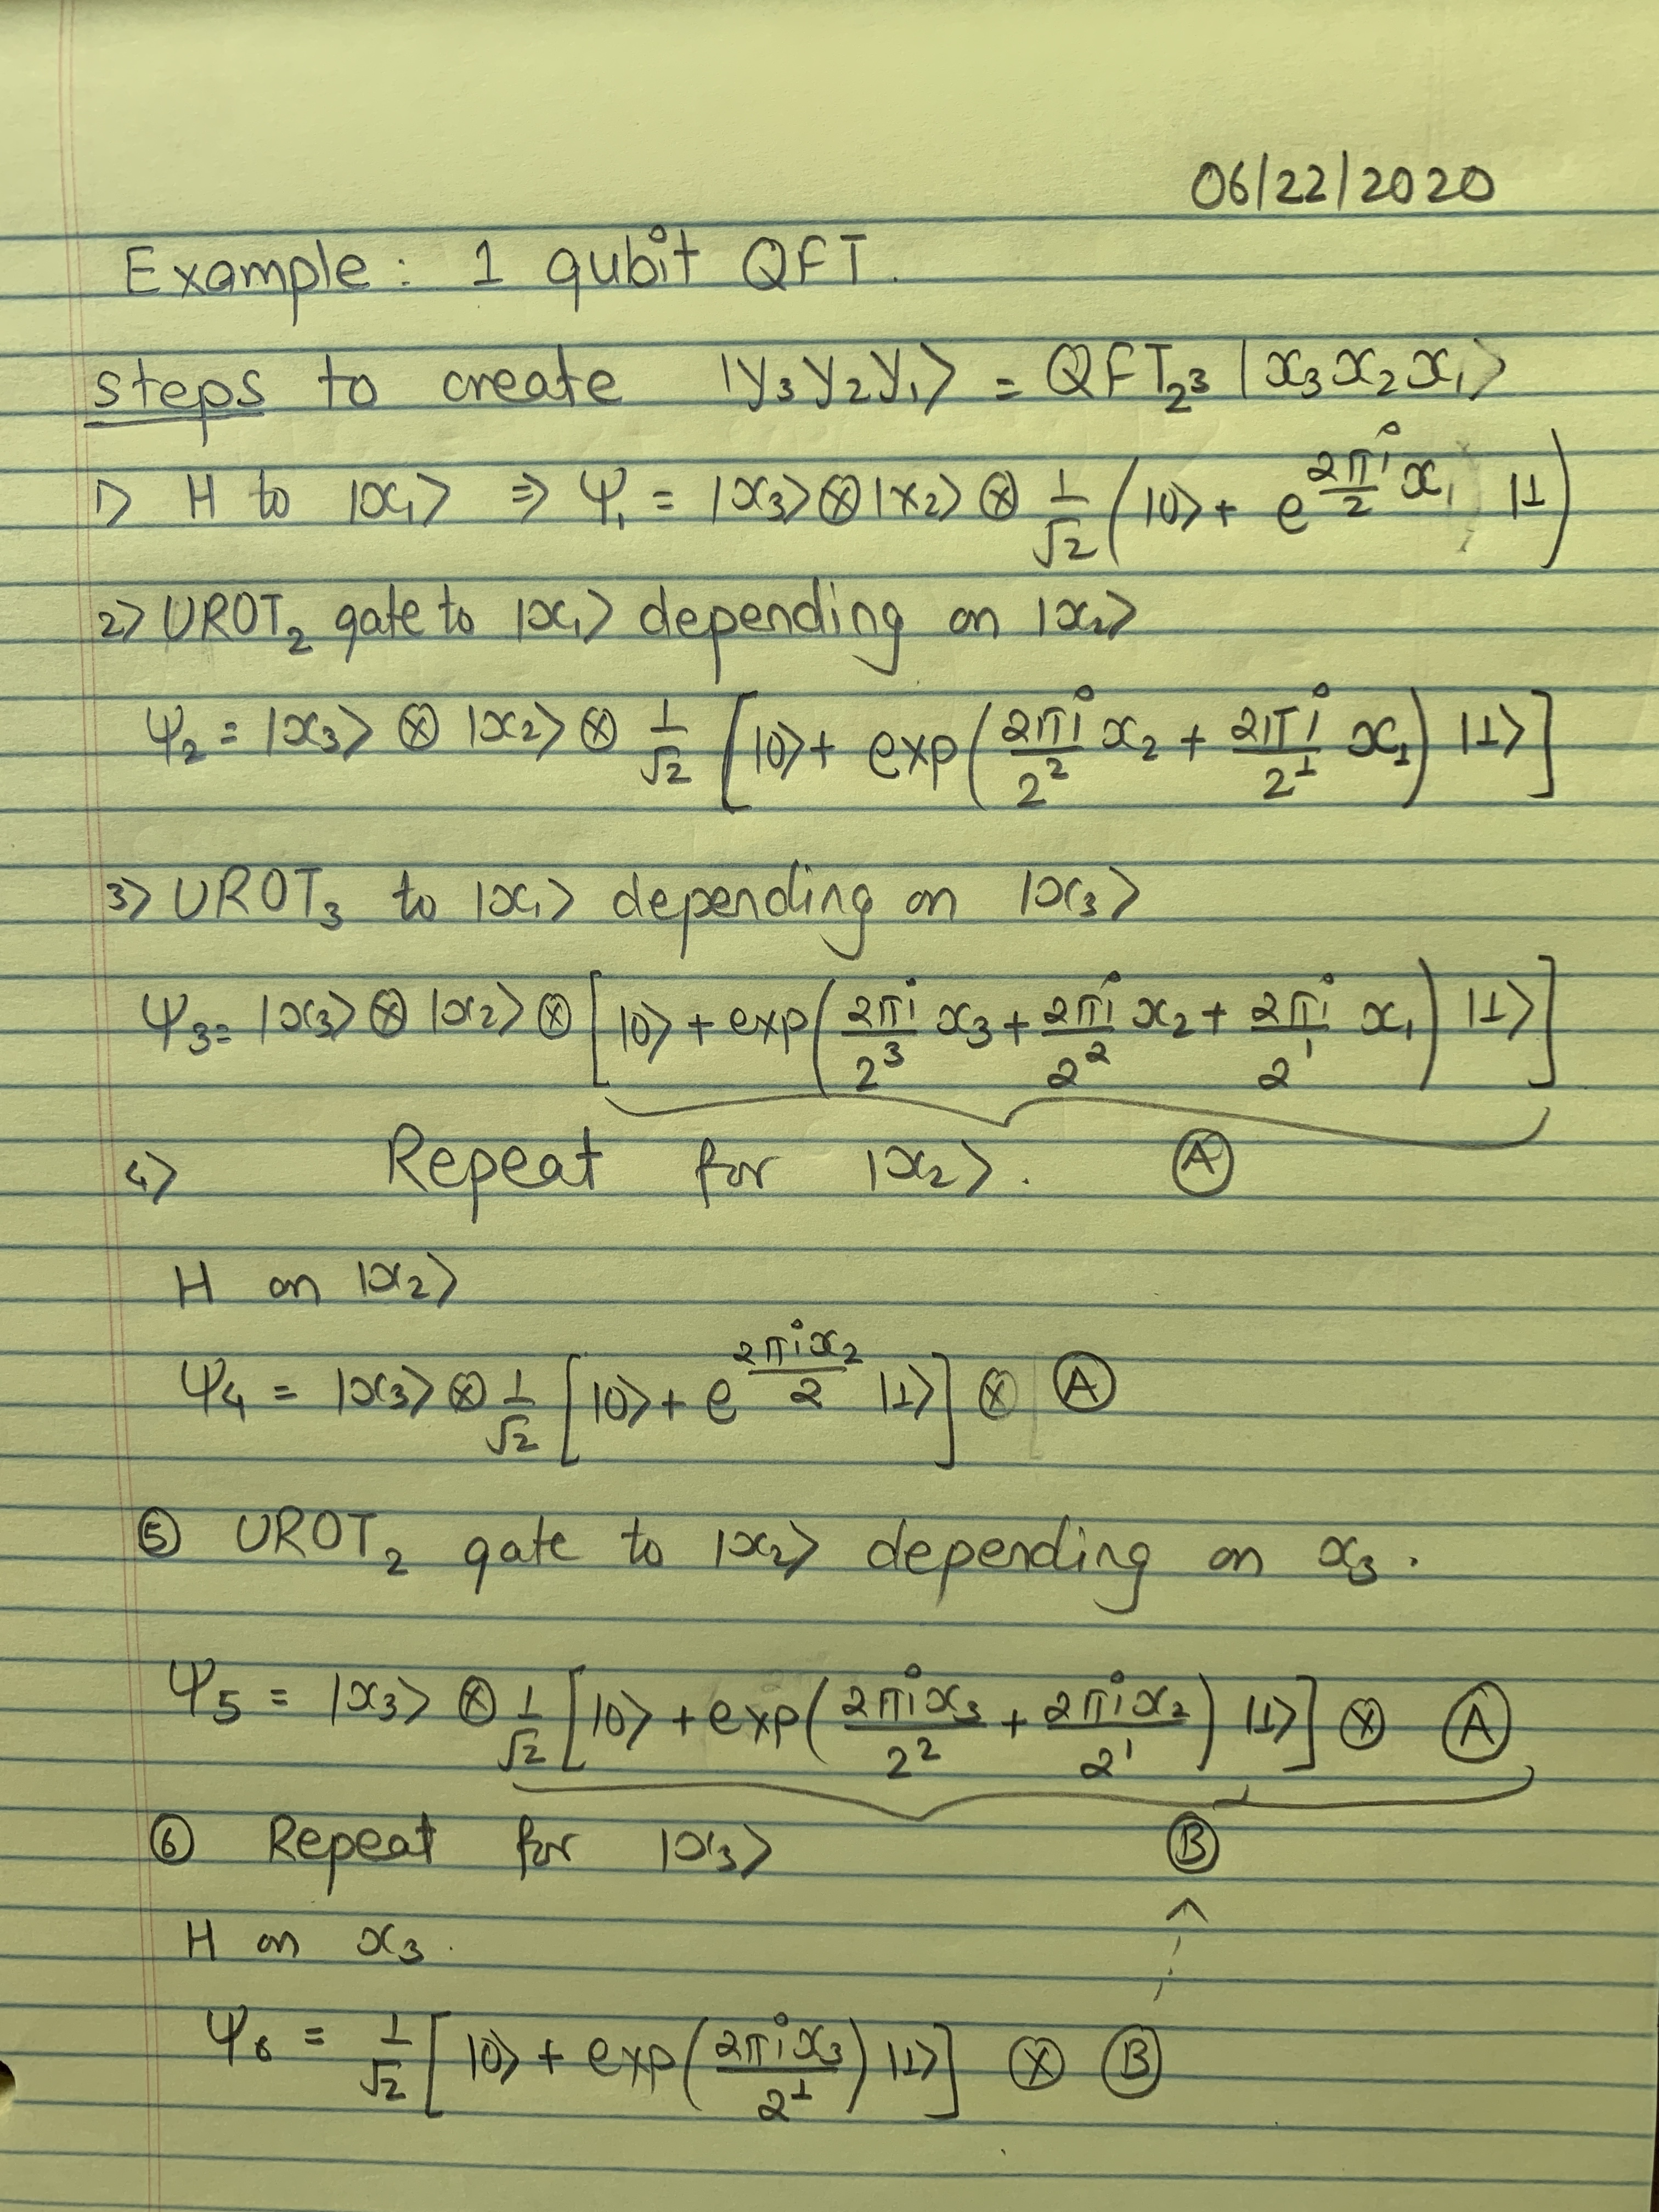 06/22/2020
Example: 1 qubit QFT.
steps to create |y₃y₂y₁⟩ = QFT₂³ |x₃x₂x₁⟩
1> H to |x₁⟩ ⇒ Ψ₁ = |x₃⟩⊗|x₂⟩⊗ 1/√2 (|0⟩+ e^(2πi/2 x₁) |1)
2> UROT₂ gate to |x₁⟩ depending on |x₂⟩
Ψ₂ = |x₃⟩ ⊗ |x₂⟩ ⊗ 1/√2 [|0⟩+ exp(2πi/2² x₂ + 2πi/2¹ x₁) |1⟩]
3> UROT₃ to |x₁⟩ depending on |x₃⟩
Ψ₃= |x₃⟩ ⊗ |x₂⟩ ⊗ [|0⟩ + exp(2πi/2³ x₃ + 2πi/2² x₂ + 2πi/2¹ x₁) |1⟩]
4> Repeat for |x₂⟩. Ⓐ
H on |x₂⟩
Ψ₄ = |x₃⟩ ⊗ 1/√2 [|0⟩+ e^(2πix₂/2) |1⟩] ⊗ Ⓐ
⑤ UROT₂ gate to |x₂⟩ depending on x₃.
Ψ₅ = |x₃⟩ ⊗ 1/√2 [|0⟩ + exp(2πix₃/2² + 2πix₂/2¹) |1⟩] ⊗ Ⓐ
⑥ Repeat for |x₃⟩ Ⓑ
H on x₃.
Ψ₆ = 1/√2 [|0⟩ + exp(2πix₃/2¹) |1⟩] ⊗ Ⓑ